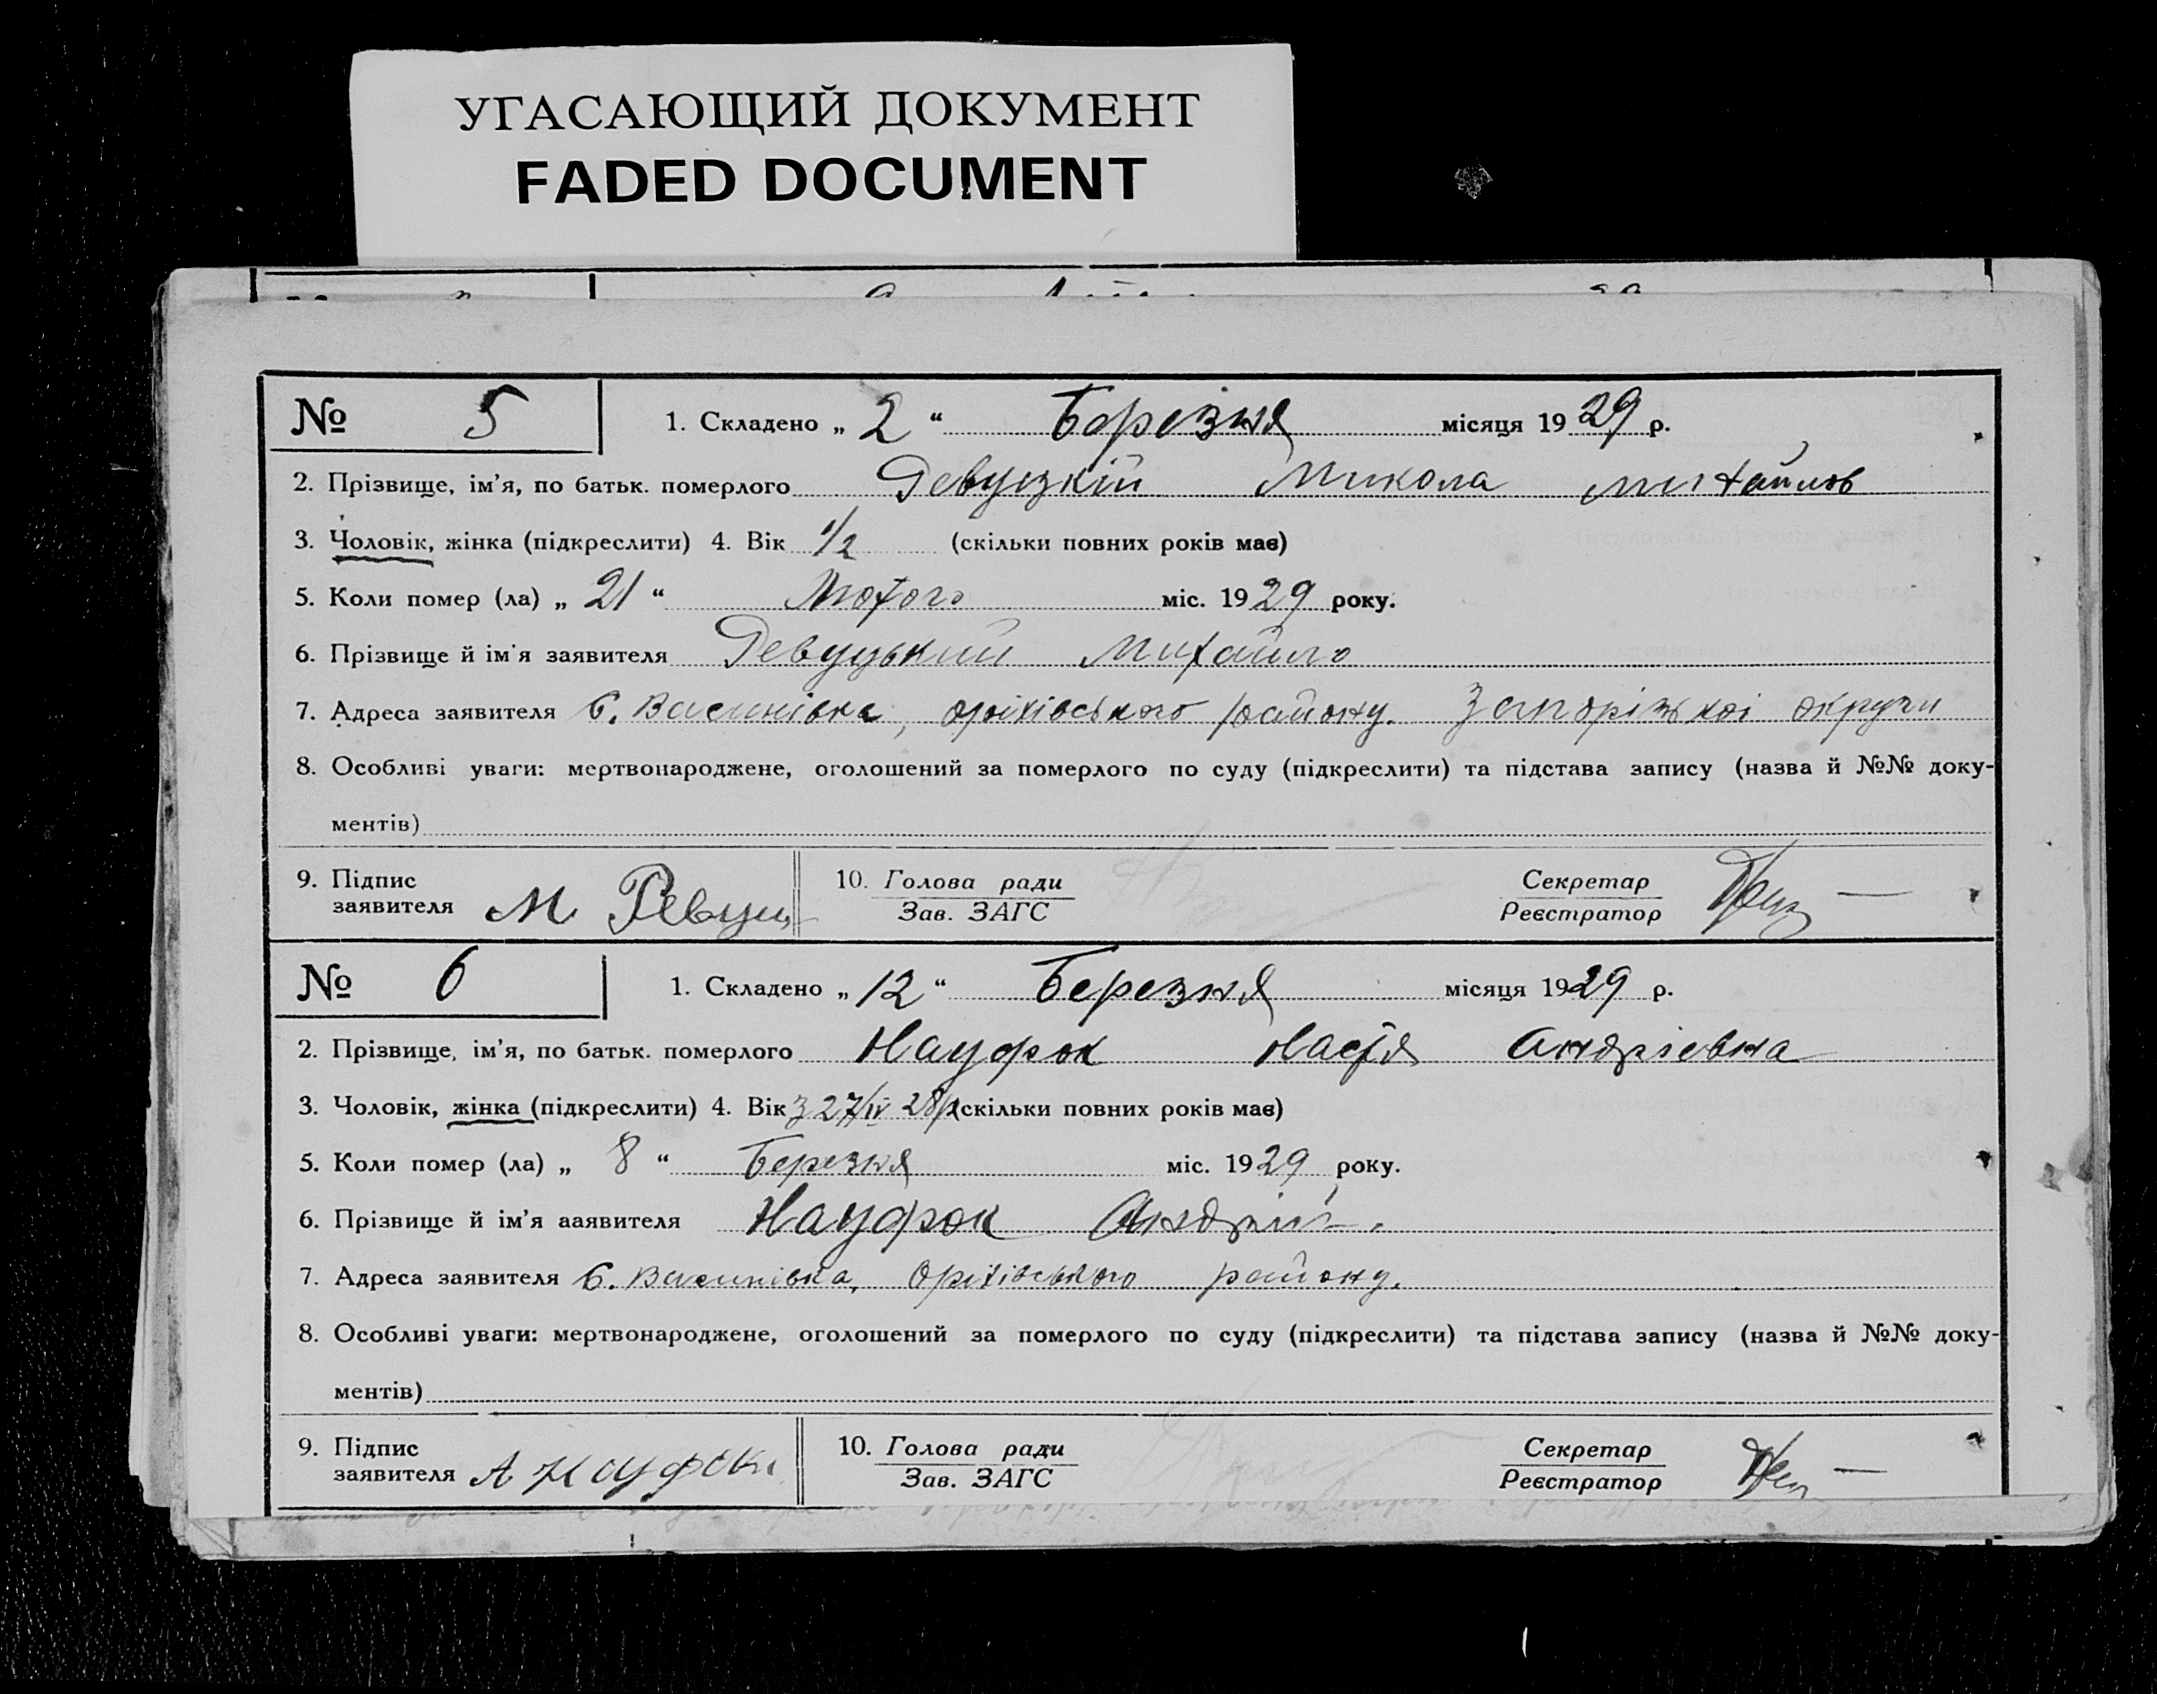 УГАСАЮЩИЙ ДОКУМЕНТ
FADED DOCUMENT
№ 5 1. Складено „ 2 “ Березня місяця 1929 р.
2. Прізвище, ім'я, по батьк. померлого Ревуцкій Микола Михайлов
3. Чоловік, жінка (підкреслити) 4. Вік 1/2 (скільки повних років має)
5. Коли помер (ла) „ 21 “ Лютого міс. 1929 року.
6. Прізвище й ім'я заявителя Ревуцький Михайло
7. Адреса заявителя с. Василівка, оріхівського району. Запорізькоі округи
8. Особливі уваги: мертвонароджене, оголошений за померлого по суду (підкреслити) та підстава запису (назва й №№ доку-
ментів)
9. Підпис заявителя М. Ревуц 10. Голова ради Зав. ЗАГС Секретар Реєстратор
№ 6 1. Складено „ 12 “ Березня місяця 1929 р.
2. Прізвище, ім'я, по батьк. померлого Науфок Настя Андріевна
3. Чоловік, жінка (підкреслити) 4. Вік з 27/IV 28р (скільки повних років має)
5. Коли помер (ла) „ 8 “ Березня міс. 1929 року.
6. Прізвище й ім'я ааявителя Науфок Андрій.
7. Адреса заявителя с. Василівка, Оріхівського району.
8. Особливі уваги: мертвонароджене, оголошений за померлого по суду (підкреслити) та підстава запису (назва й №№ доку-
ментів)
9. Підпис заявителя А Науфок 10. Голова ради Зав. ЗАГС Секретар Реєстратор